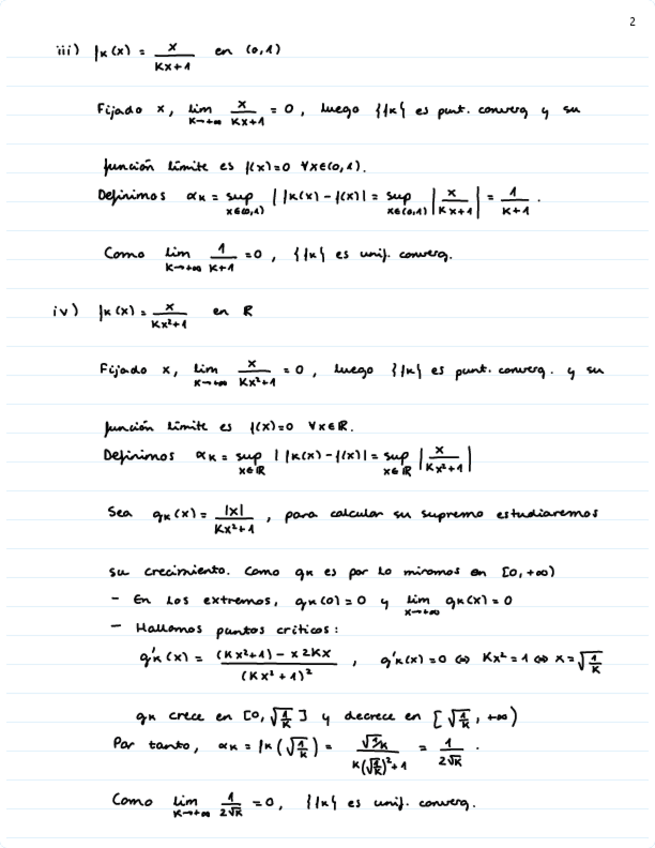 2
iii) fk(x) = x/(kx+1) en (0,1)
Fijado x, lim k→+∞ x/(kx+1) = 0, luego {fk} es punt. converg y su
función límite es f(x)=0 ∀x∈(0,1).
Definimos αk = sup x∈(0,1) |fk(x) - f(x)| = sup x∈(0,1) |x/(kx+1)| = 1/(k+1).
Como lim k→+∞ 1/(k+1) = 0, {fk} es unif. converg.
iv) fk(x) = x/(kx²+1) en ℝ
Fijado x, lim k→+∞ x/(kx²+1) = 0, luego {fk} es punt. converg. y su
función límite es f(x)=0 ∀x∈ℝ.
Definimos αk = sup x∈ℝ |fk(x) - f(x)| = sup x∈ℝ |x/(kx²+1)|
Sea gk(x) = |x|/(kx²+1), para calcular su supremo estudiaremos
su crecimiento. Como gk es par lo miramos en [0,+∞)
- En los extremos, gk(0)=0 y lim x→+∞ gk(x)=0
- Hallamos puntos críticos:
g'k(x) = ((kx²+1) - x2kx)/(kx²+1)², g'k(x)=0 ⇔ kx²=1 ⇔ x=√(1/k)
gk crece en [0,√(1/k)] y decrece en [√(1/k),+∞)
Por tanto, αk = fk(√(1/k)) = √(1/k)/(k(√(1/k))²+1) = 1/(2√k).
Como lim k→+∞ 1/(2√k) = 0, {fk} es unif. converg.